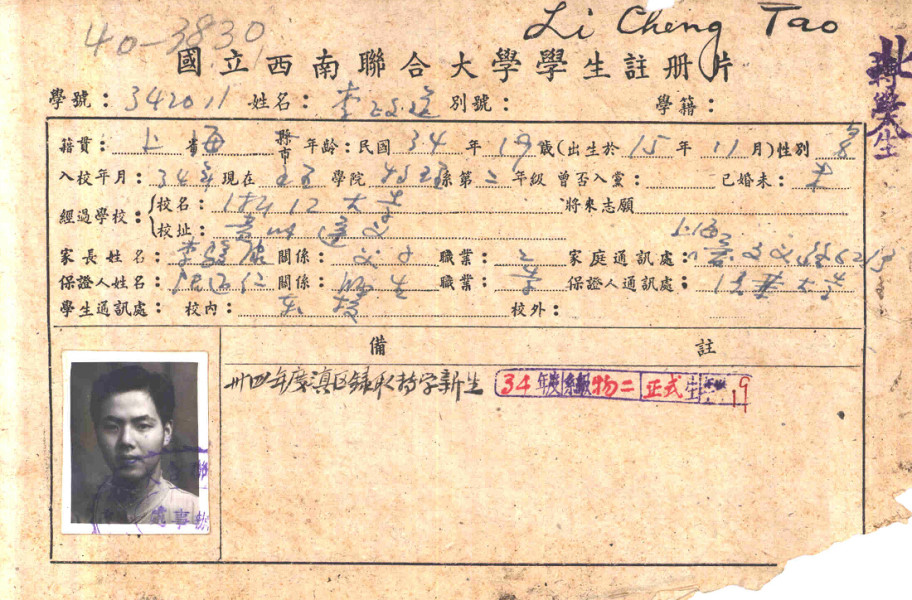 Li Cheng Tao
40-3830
國立西南聯合大學學生註册片
學號：342011 姓名：李政道 別號： 學籍：
籍貫：上海省 縣市 年齡：民國34年19歲(出生於15年11月)性別男
入校年月：34年 現在理學院物理系第二年級 曾否入黨： 已婚未：未
經過學校：校名：浙江大學 將來志願
校址：貴州 上海
家長姓名：李駿康 關係：父子 職業： 家庭通訊處：
保證人姓名： 關係：師生 職業： 保證人通訊處：大學
學生通訊處：校內：本校 校外：
備 註
卅四年度滇區錄取轉學新生 34年度系級物二 正式生
轉學生
北